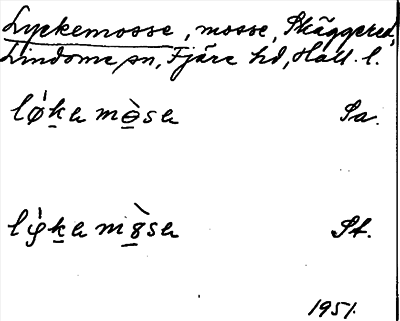 Lyckemosse, mosse, Skäggered,
Lindome sn, Fjäre hd, Hall. l.
lø̀ḵa mò̱sa Sa.
lφ̀ḵa m8̱̀sa St.
1951.